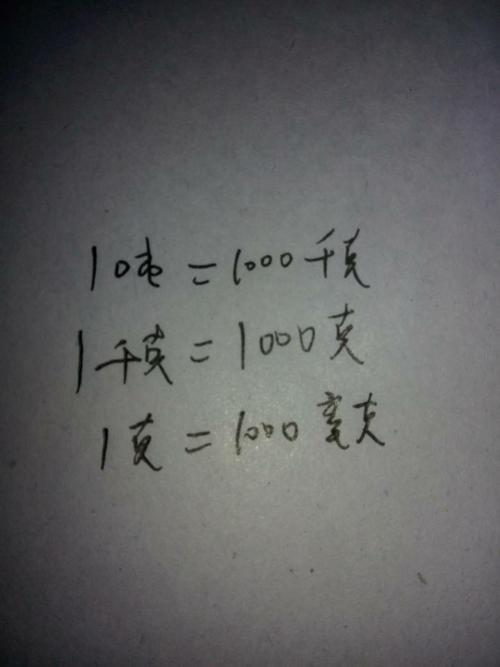 1吨=1000千克
1千克=1000克
1克=1000毫克